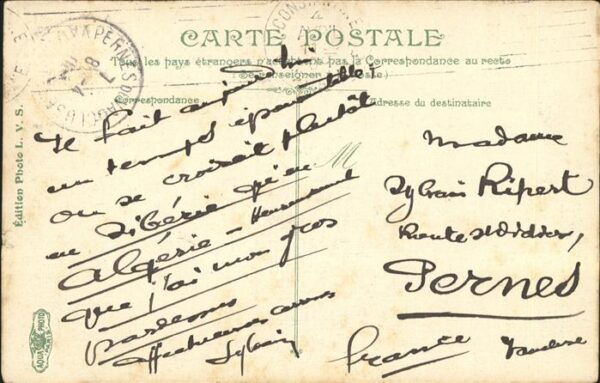 CARTE POSTALE
Tous les pays étrangers n'acceptent pas la Correspondance au recto
(Se renseigner à la Poste)
Correspondance
Adresse du destinataire
Il fait aujourd'hui
un temps épouvantable !
on se croirait plutôt
en Sibérie qu'en
Algérie - Heureusement
que j'ai mon gros
pardessus
Affectueuses
Sylvain
M
Madame
Sylvain Ripert
Route St Didier,
Pernes
Vaucluse
France
Édition Photo L. V. S.
AQUA PHOTO
PARIS
PERNES
VAUCLUSE
CONSTANTINE